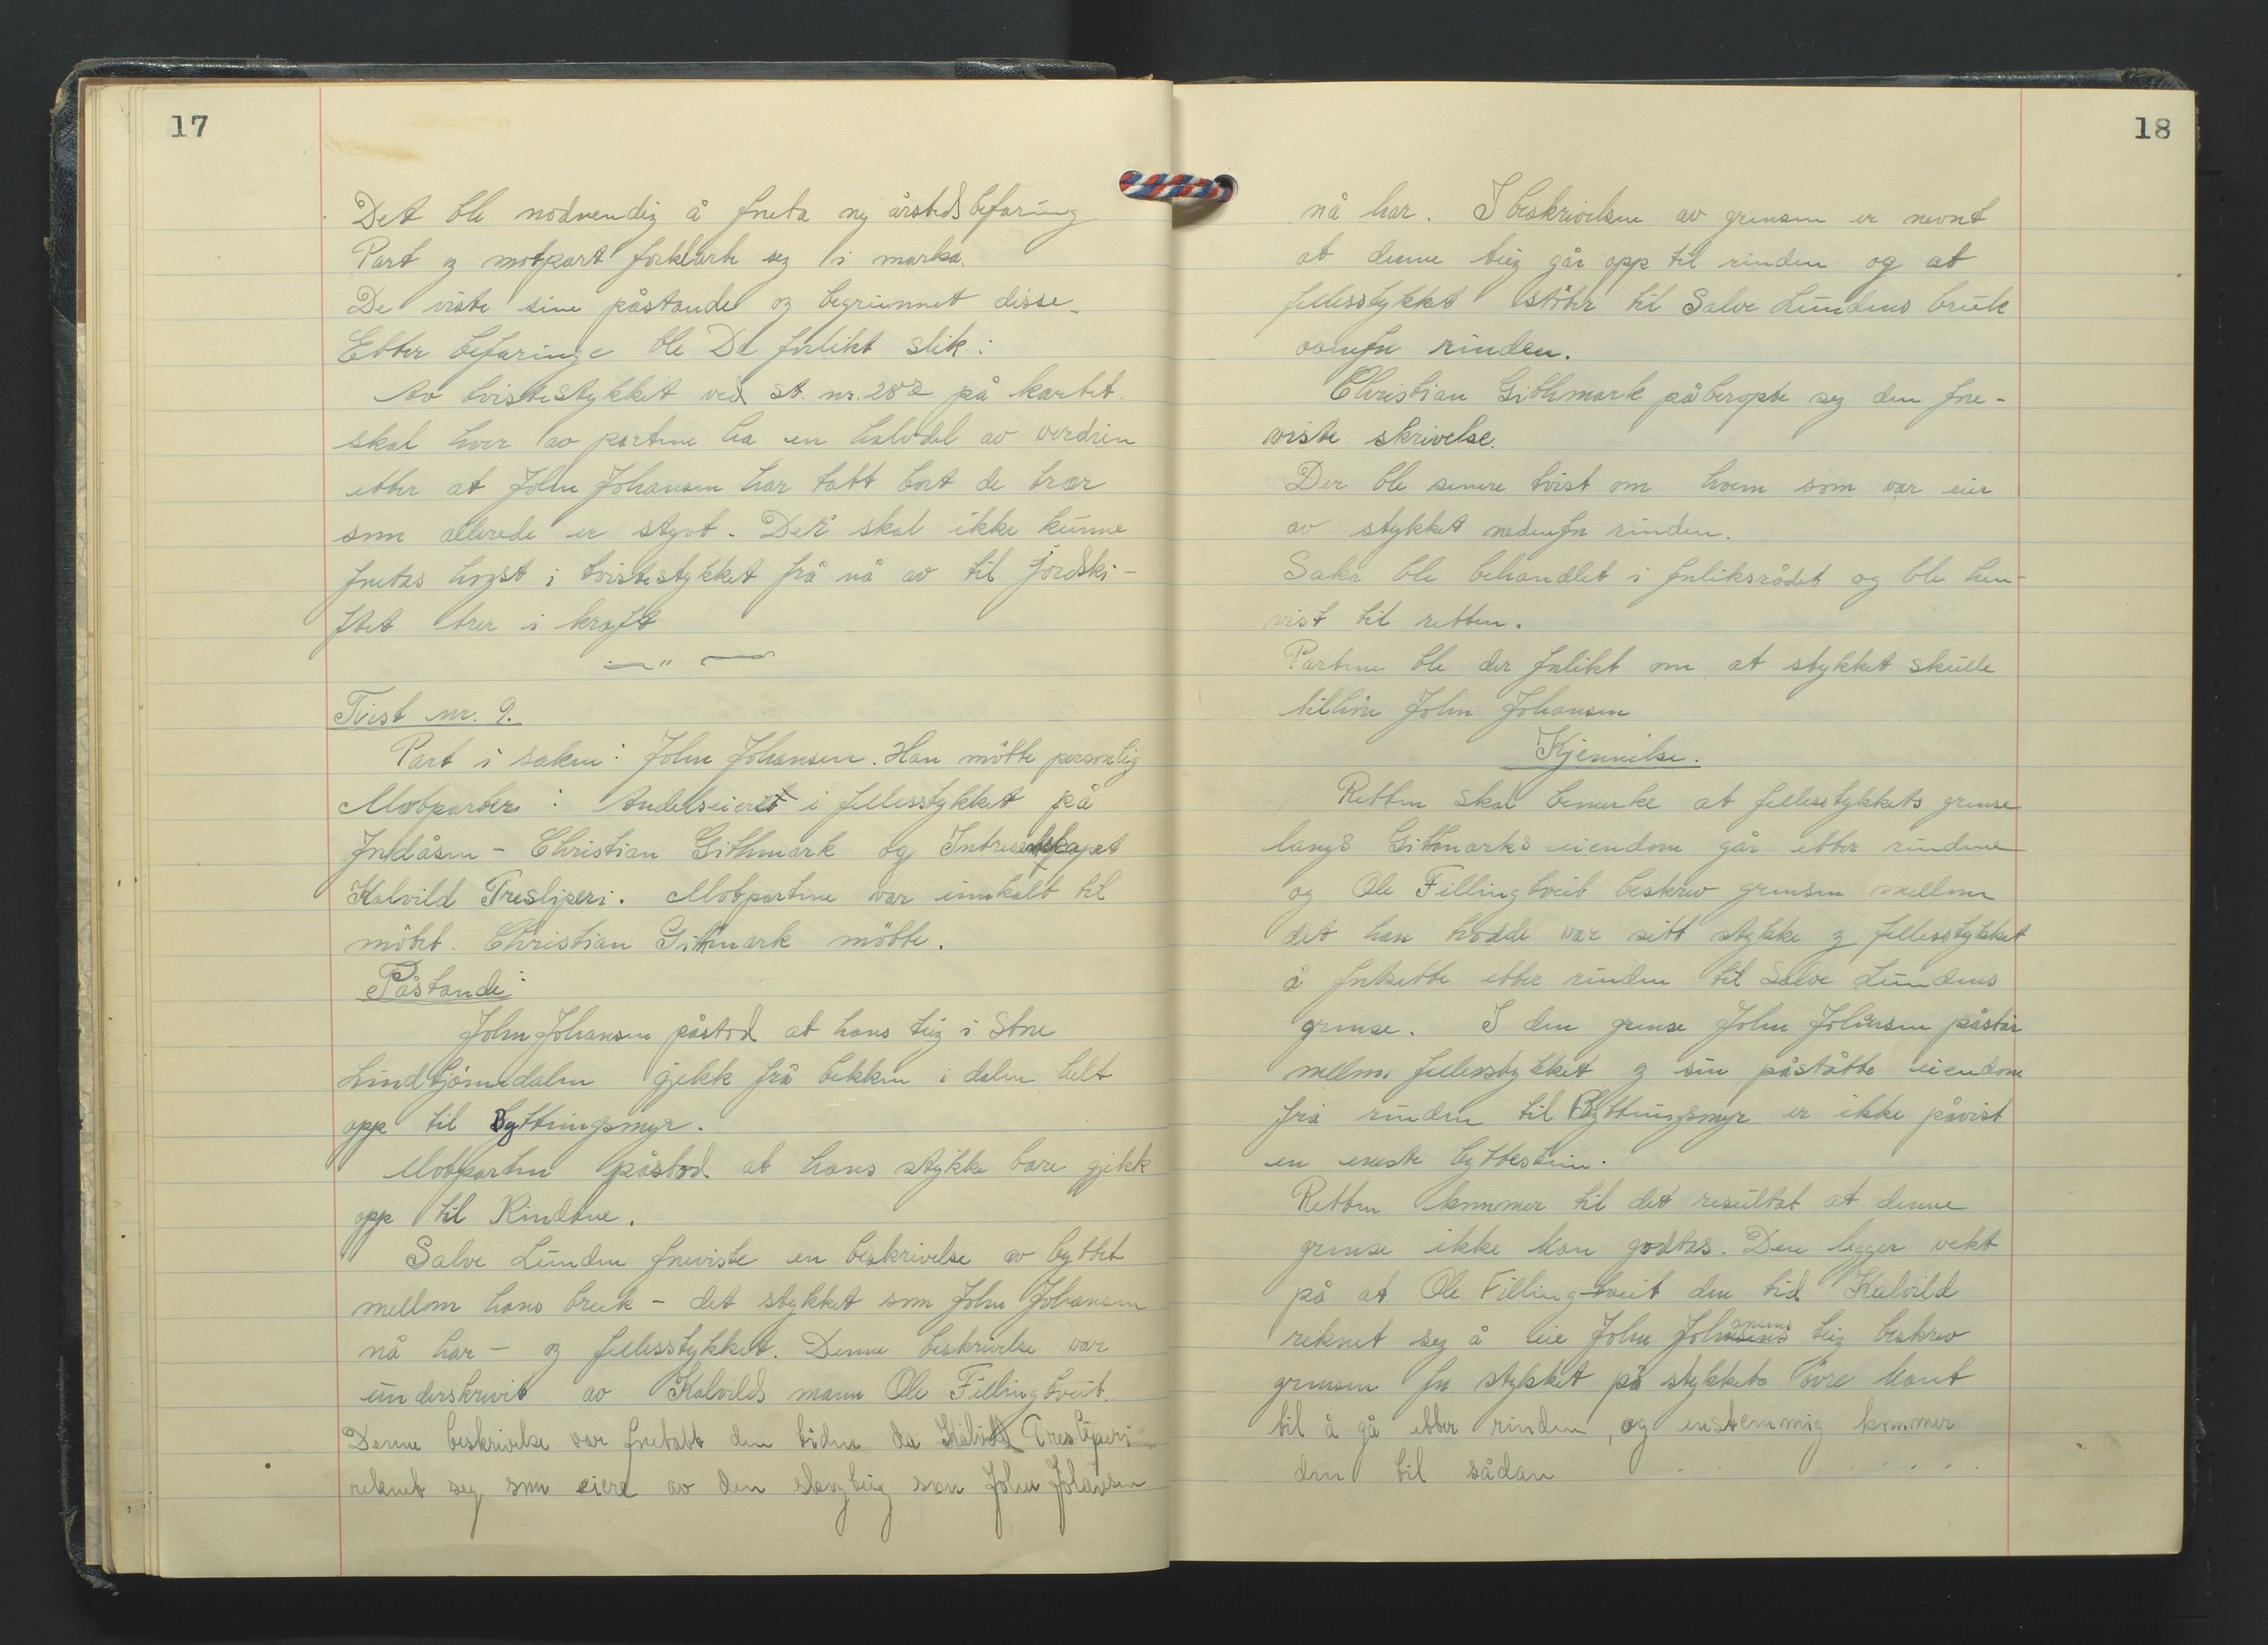 17
Det ble nödvendig å foreta ny årstedsbefaring
Part og motpart forklarte seg i marka.
De viste sine påstande og begrunnet disse.
Etter befaringe ble De forlikt slik:
Av tvistestykket ved st. nr. 282 på kartet.
skal hver av partene ha en halvdel av verdien
etter at John Johansen har tatt bort de trær
som allerede er styvt. Der skal ikke kunne
foretas hogst i tvistestykket frå nå av til jordski-
ftet trer i kraft
— " —
Tvist nr. 9.
Part i saken: John Johansen. Han mötte personlig
Motparter: Andelseieret i fellesstykket på
Christian Githmark og
Kalvild Tresliperi. Motpartene var innkalt til
mötet. Christian Githmark mötte.
Påstande:
John Johansen påstod at hans teig i Store
Lindtjönndalen gjekk frå bekken i dalen helt
opp til Byttningsmyr.
Motparten påstod at hans stykke bare gjekk
opp til Rindene.
Salve Lunden foreviste en beskrivelse av byttet
mellom hans bruk - det stykket som John Johansen
nå har - og fellesstykket. Denne beskrivelse var
underskrivit av Kalvilds mann Ole Fillingtveit.
Denne beskrivelse var foretatt den tiden da Kalvild Tresliperi
reknet seg som eiere av den skogteig som John Johansen
18
nå har. I beskrivelsen av grensen er nevnt
at denne teig går opp til rinden og at
fellesstykket stöter til Salve Lundens bruk
ovenfor rinden.
Christian Githmark påberopte seg den fore-
viste skrivelse.
Der ble senere tvist om hvem som var eier
av stykket nedenfor rinden.
Saka ble behandlet i forliksrådet og ble hen-
vist til retten.
Partene ble der forlikt om at stykket skulle
tilhöre John Johansen
Kjennelse.
Retten skal bemerke at fellesstykkets grense
langs Githmarks eiendom går etter rindene
og Ole Fillingtveit beskrev grensen mellom
det han trodde var sitt stykke og fellesstykket
å fortsette etter rinden til Salve Lundens
grense. I den grense John Johansen påstår
mellom fellesstykket og sin påståtte eiendom
frå rinden til Byttningsmyr er ikke påvist
en eneste byttestein.
Retten kommer til det resultat at denne
grense ikke kan godtas. Den legger vekt
på at Ole Fillingtveit den tid Kalvild
reknet seg å eie John Johansens teig beskrev
grensen for stykket på stykkets övre kant
til å gå etter rinden, og enstemmig kommer
den til sådan